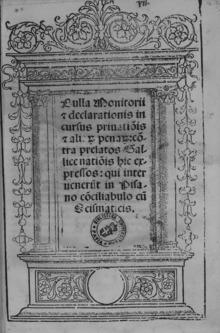 Bulla Monitorii
⁊ declarationis in
cursus priuatiõis
⁊ ali. ꝛ penaꝝ: cõ
tra prelatos Gal
lice natiõis hic ex
pressos: qui inter
uenerũt in Pisa
no cõciliabulo cũ
Scismaticis.